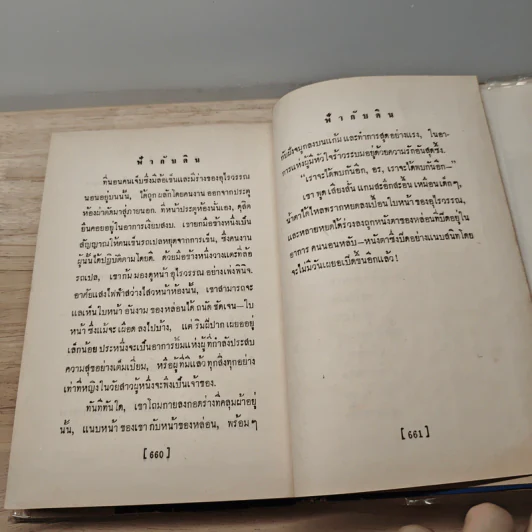 ฟ้ากับดิน
ที่นอนคนเจ็บซึ่งมีล้อเข็นและมีร่างของอุไรวรรณ
นอนอยู่บนนั้น, ได้ถูกผลักโดยคนงาน ออกจากประตู
ห้องผ่าตัดมาสู่ภายนอก, ที่หน้าประตูห้องนั้นเอง, ดุสิต
ยืนคอยอยู่ในอาการเงียบสงบ. เขายกมือข้างหนึ่งเป็น
สัญญาณให้คนเข็นรถเปลหยุดจากการเข็น, ซึ่งคนงาน
ผู้นั้นได้ปฏิบัติตามโดยดี. ด้วยมือข้างหนึ่งวางแตะที่ล้อ
รถเปล, เขาก้มมองดูหน้าอุไรวรรณ อย่างเพ่งพินิจ.
อาศัยแสงไฟฟ้าสว่างไสวหน้าห้องนั้น, เขาสามารถจะ
แลเห็นใบหน้าอันงามของหล่อนได้ถนัดชัดเจน—ใบ
หน้า ซึ่งแม้จะเผือดลงไปบ้าง, แต่ริมฝีปากเผยออยู่
เล็กน้อย ประหนึ่งจะเป็นอาการยิ้มแห่งผู้ที่กำลังประสบ
ความสุขอย่างเต็มเปี่ยม, หรือผู้ที่มีแล้วทุกสิ่งทุกอย่าง
เท่าที่หญิงในวัยสาวผู้หนึ่งจะพึงเป็นเจ้าของ.
ทันทีทันใด, เขาโถมกายลงกอดร่างที่คลุมผ้าอยู่
นั้น, แนบหน้าของเขากับหน้าของหล่อน, พร้อมๆ
[ 660 ]
ฟ้ากับดิน
กับฝังจมูกลงบนแก้ม และทำการสูดอย่างแรง, ในอา-
การแห่งผู้มีหัวใจร้าวระบมอยู่ด้วยความรักอันสุดซึ้ง.
"เราจะได้พบกันอีก, อร, เราจะได้พบกันอีก—"
เขาพูดเสียงสั่น แกมสะอึกสะอื้นเหมือนเด็กๆ,
น้ำตาได้ไหลพรากหยดลงเปื้อนใบหน้าของอุไรวรรณ,
และหลายหยดได้ร่วงลงถูกหนังตาของหล่อนที่ปิดอยู่ใน
อาการคนนอนหลับ—หนังตาซึ่งปิดอย่างแนบสนิทโดย
จะไม่มีวันเผยอเปิดขึ้นอีกแล้ว!
[ 661 ]